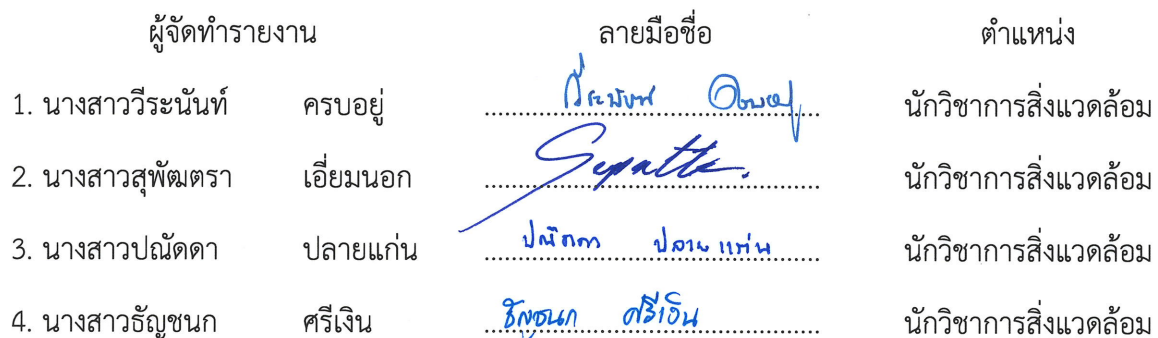 ผู้จัดทำรายงาน ลายมือชื่อ ตำแหน่ง
1. นางสาววีระนันท์ ครบอยู่ วีระนันท์ ครบอยู่ นักวิชาการสิ่งแวดล้อม
2. นางสาวสุพัฒตรา เอี่ยมนอก Supatta. นักวิชาการสิ่งแวดล้อม
3. นางสาวปณัดดา ปลายแก่น ปณัดดา ปลายแก่น นักวิชาการสิ่งแวดล้อม
4. นางสาวธัญชนก ศรีเงิน ธัญชนก ศรีเงิน นักวิชาการสิ่งแวดล้อม